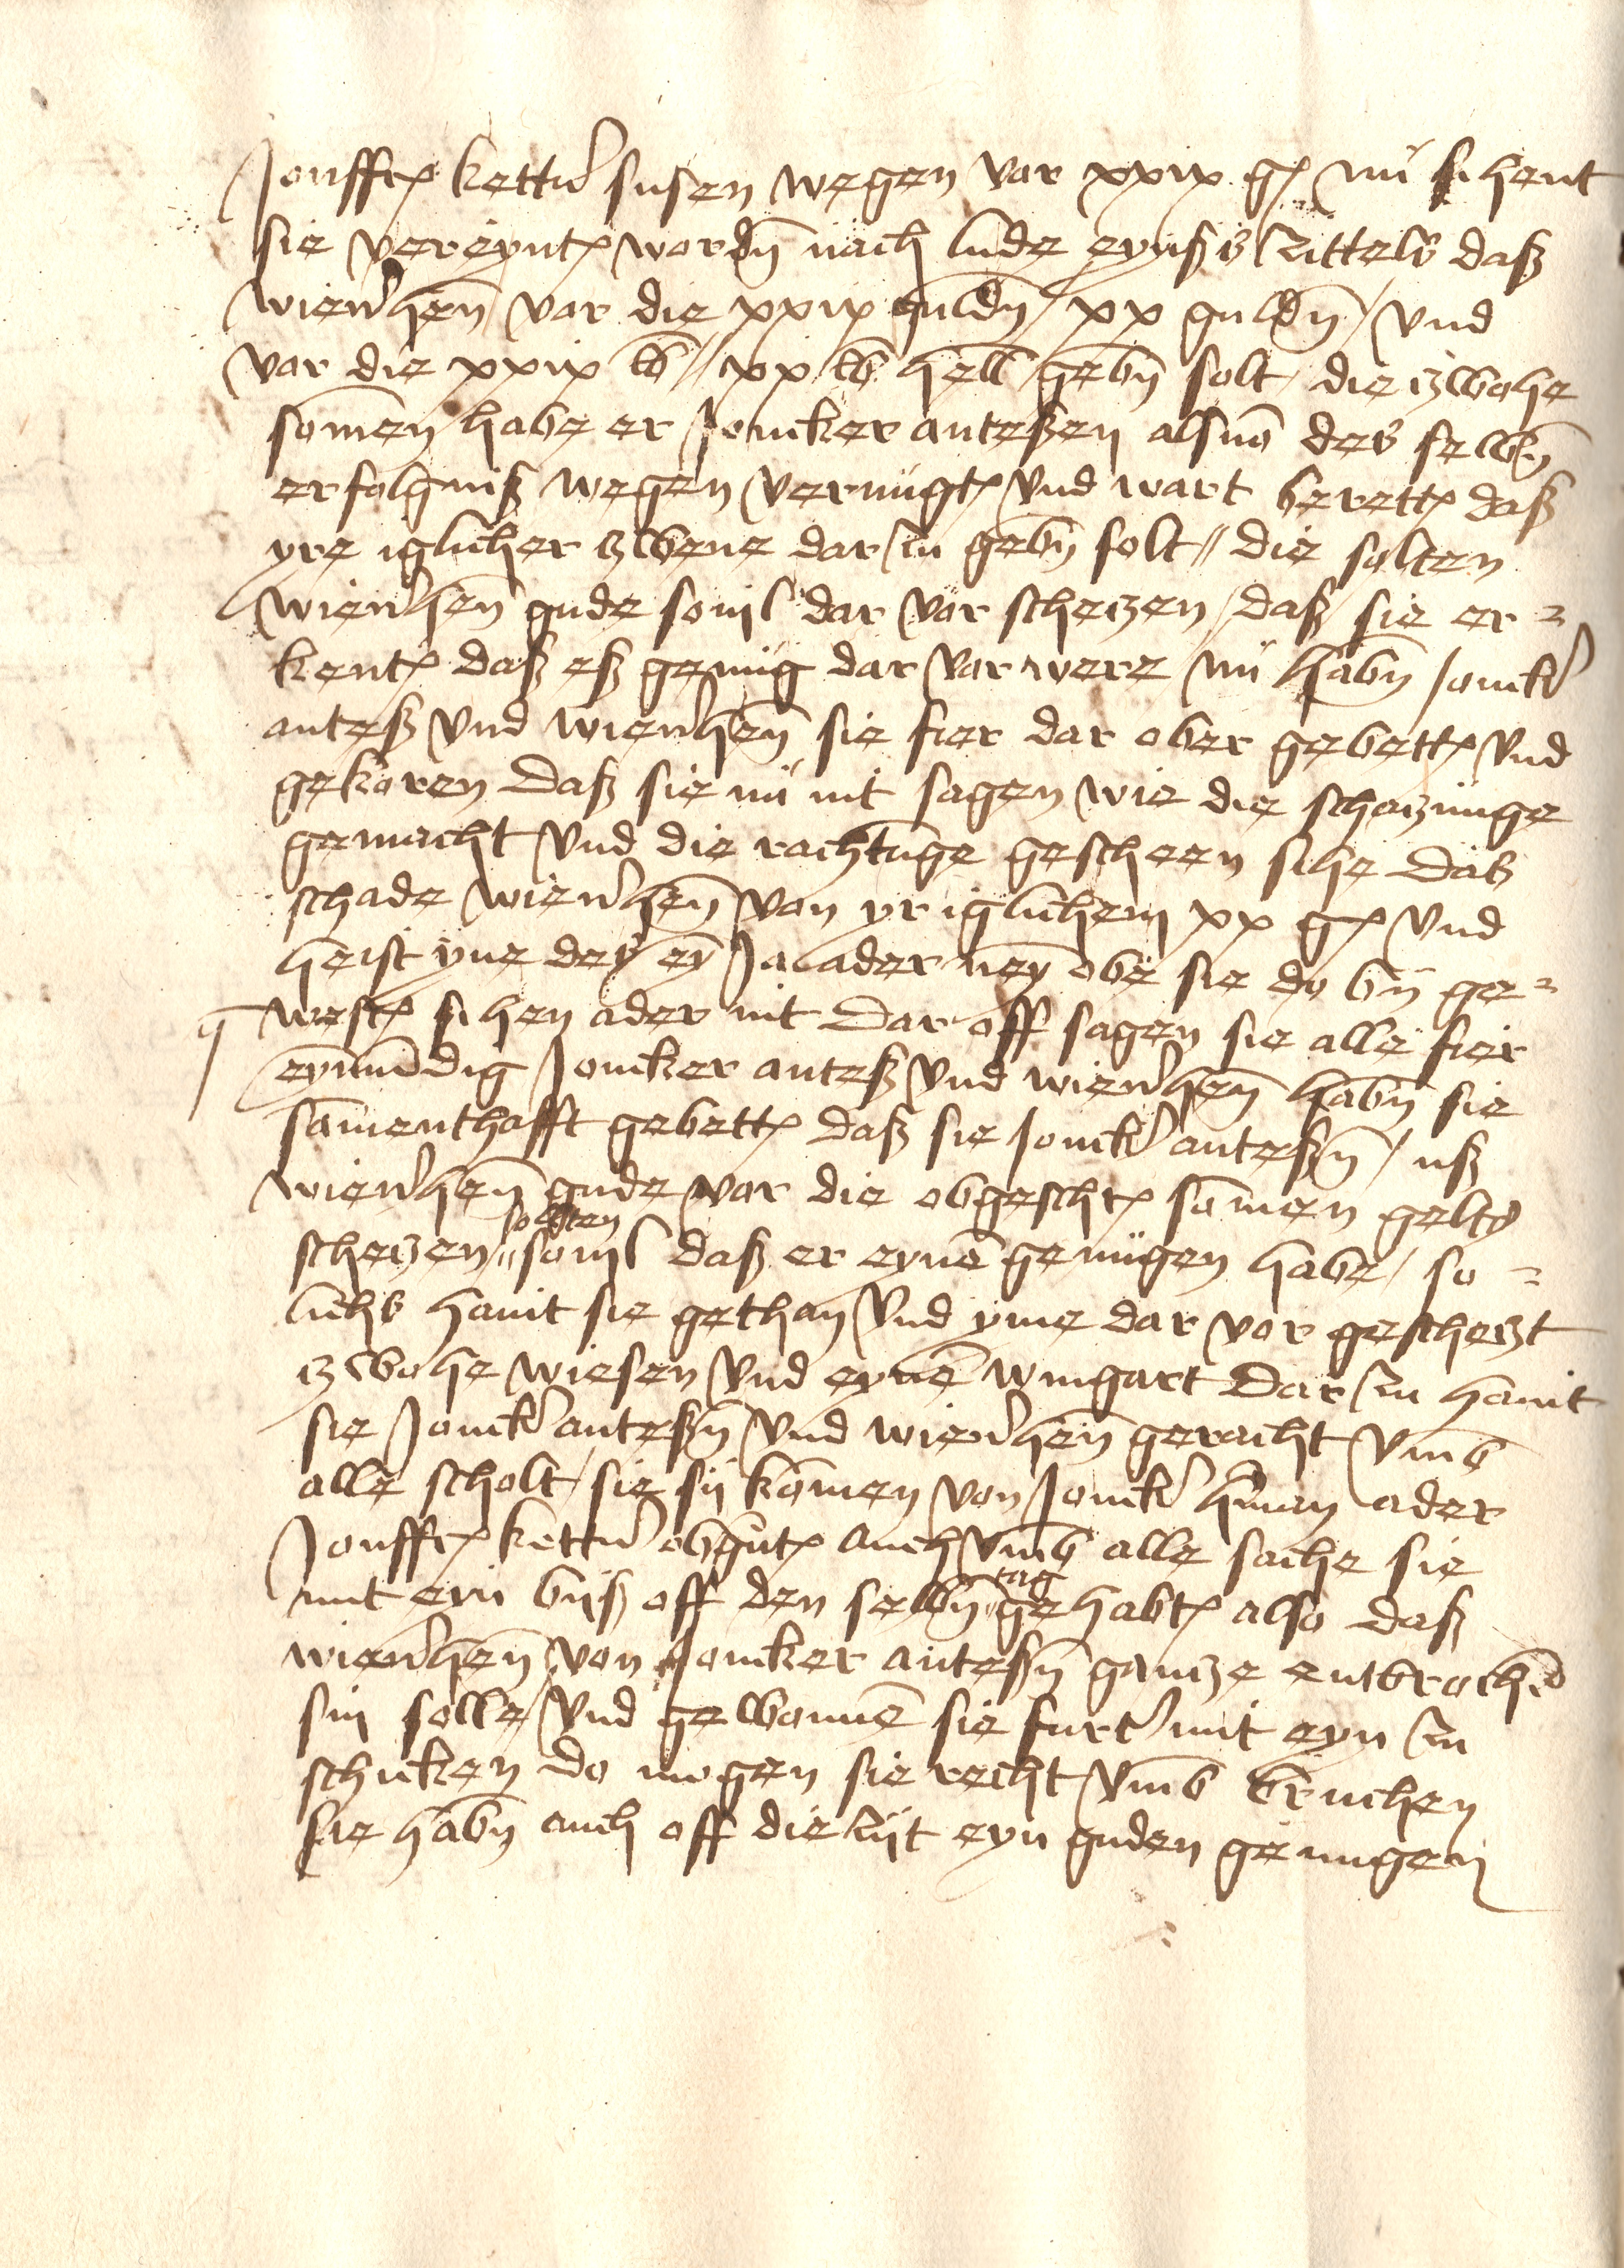 Jonffr kettr susen wegen vor xxix g nu sihent
sie vereynt wordn nach lude eynßs zittels daß
wienhen vor die xxix guldn / xx guldn / vnd
vor die xxix lb // xx lb hell gebn solt / die zwohe
somen habe er Joncker anteßen alsuo des selbn
erfolgniß wegen vernugt vnd wart berett daß
yre iglicher zwene dar zu gebn solt // die solten
wienhen gude souil dar vor schetzen / daß sie er=
kent daß eß genug dar vor were nu habn Jonckr
anteß vnd wienhen sie fier dar ober gebett vnd
gekoren daß sie nu nit sagen wie die schatzunge
gemacht vnd die rachtunge gescheen sihe daß
schade wienhen von yr iglichem xx g vnd
heist yne des ey Ja ader ney obe sie do by ge=
west sihen ader nit Dar off sagen sie alle fier
eynmudig Joncker anteß vnd wienhen habn sie
samenthafft gebett daß sie Jonckr anteßn / uß
wienhen gude vor die obgescht somen gelts
schetzen // solten souil daß er eyne genugen habe / so=
lichs hanit sie gethan vnd yme dar vor geschetzt
zwohe wiesen vnd eyne wingart Dar zu hanit
sie Jonckr anteßn vnd wienhen geracht vmb
alle scholt / sie sij komen von Jonckr hman ader
Jonffr kettr obgnt auch vmb alle sache sie
mit eyn biß off den selbn tag gehabt also daß
wienhen von Joncker anteßn gantze entbrochen
sin solle / vnd gewonne sie furtr mit eyn zu
schicken do mogen sie recht vmb bruchen
sie habn auch off die zijt eyn guden genugen